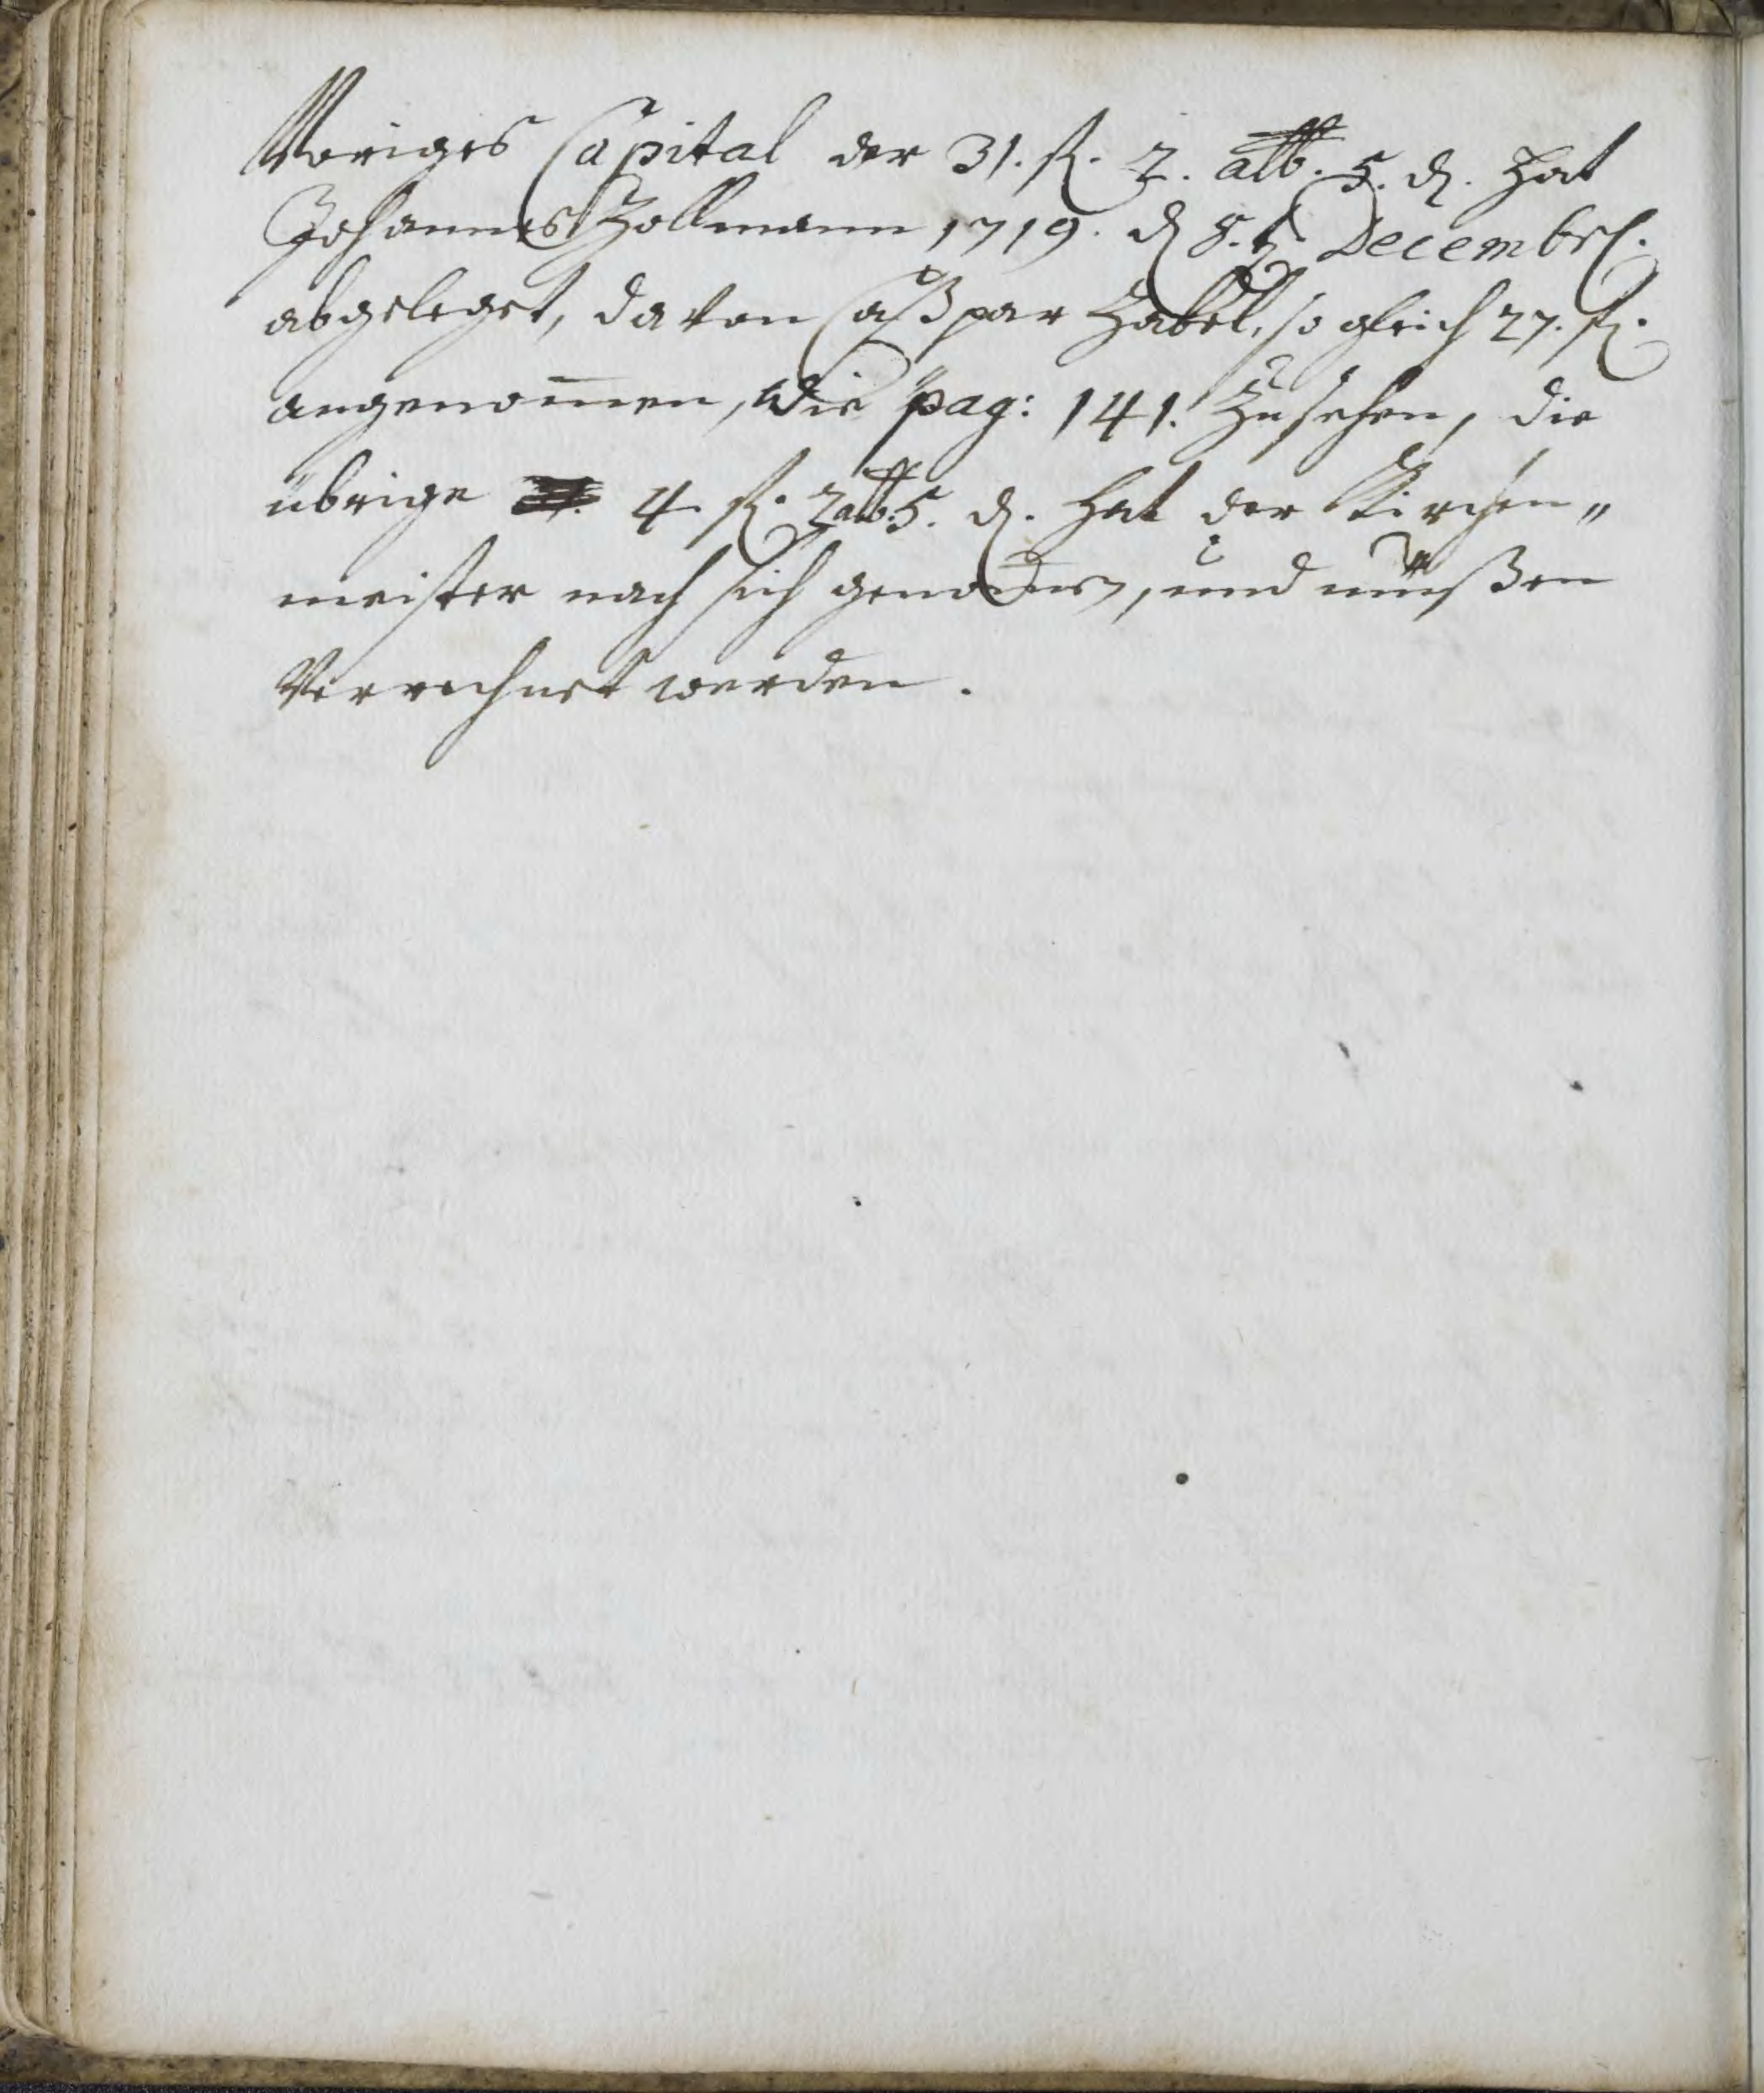 Voriges Capital der 31. fl. 2. alb. 5. d. hat
Johannes Zollmann 1719. d 8. t Decembr.
abgeleget, davon Caßpar Zabel, so gleich 27. fl.
angenom̄en, wie pag: 141. Zusehen, die
übrige 4. fl. 2 alb. 5. d. hat der Kirchen„
meister nach sich genom̄en, und müßen
Verrechnet werden.